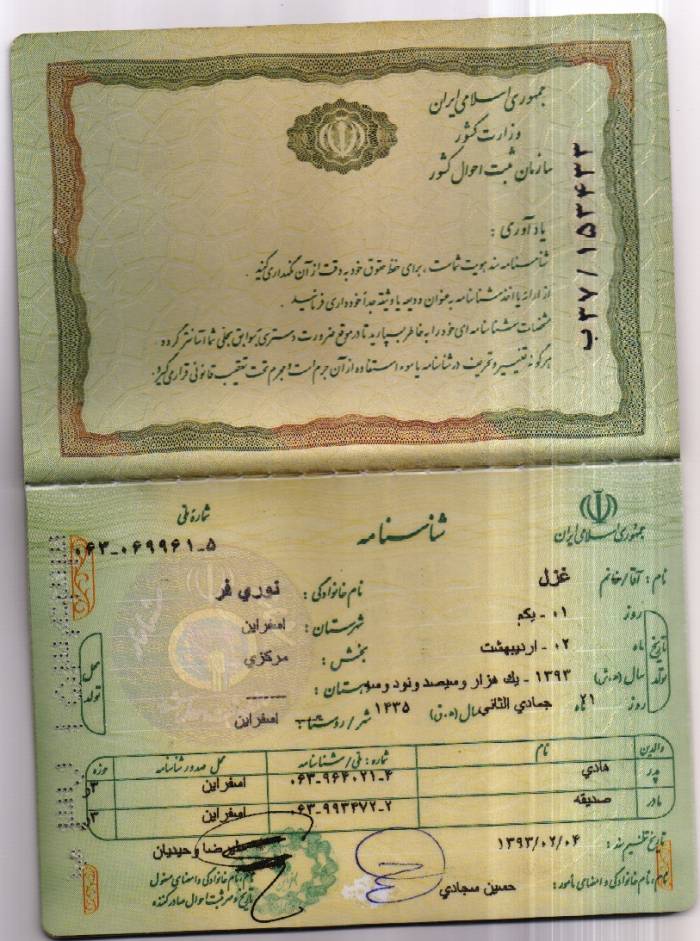 جمهوری اسلامی ایران
وزارت کشور
سازمان ثبت احوال کشور
ب۳۷/۱۵۳۴۳۳
یادآوری :
شناسنامه سند هویت شماست ، برای حفظ حقوق خود به دقت از آن نگهداری کنید .
از ارائه یا اخذ شناسنامه به عنوان ودیعه یا وثیقه جداً خودداری فرمائید .
مشخصات شناسنامه ای خود را به خاطر بسپارید تا در موقع ضرورت دسترسی به سوابق سجلی شما آسانتر گردد .
هرگونه تغییر و تحریف در شناسنامه یا سوء استفاده از آن جرم است و مجرم تحت تعقیب قانونی قرار می گیرد .
جمهوری اسلامی ایران
شناسنامه
شمارهٔ ملی
۰۶۳-۰۶۹۹۶۱-۵
نام : آقا/خانم غزل
نام خانوادگی : نوري فر
تاریخ تولد
روز ۰۱ - یکم
ماه ۰۲ - اردیبهشت
سال (ه.ش) ۱۳۹۳ - یك هزار و سیصد و نود و سه
روز ۲۱ ماه جمادي الثاني سال (ه.ق) ۱۴۳۵
محل تولد
شهرستان : اسفراین
بخش : مرکزي
دهستان : ------
شهر / روستا : اسفراین
والدین نام شماره : ملی / شناسنامه محل صدور شناسنامه حوزه
پدر هادي ۰۶۳-۹۶۴۰۲۱-۴ اسفراین
مادر صدیقه ۰۶۳-۹۹۳۴۷۲-۲ اسفراین
تاریخ تنظیم سند : ۱۳۹۳/۰۲/۰۴
نام ، نام خانوادگی و امضای مأمور : حسین سجادي
وحیدیان
نام ، نام خانوادگی و امضای مسئول
و مهر ثبت احوال صادر کننده